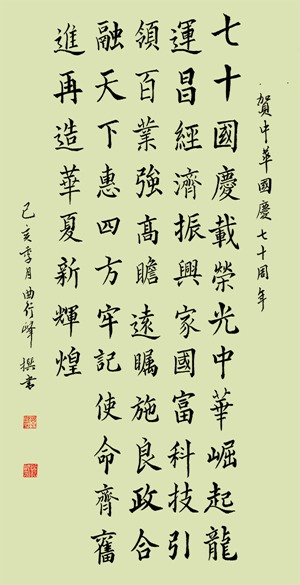 賀中華國慶七十周年
七十國慶載榮光中華崛起龍
運昌經濟振興家國富科技引
領百業強高瞻遠矚施良政合
融天下惠四方牢記使命齊奮
進再造華夏新輝煌
己亥季月曲行峰撰書